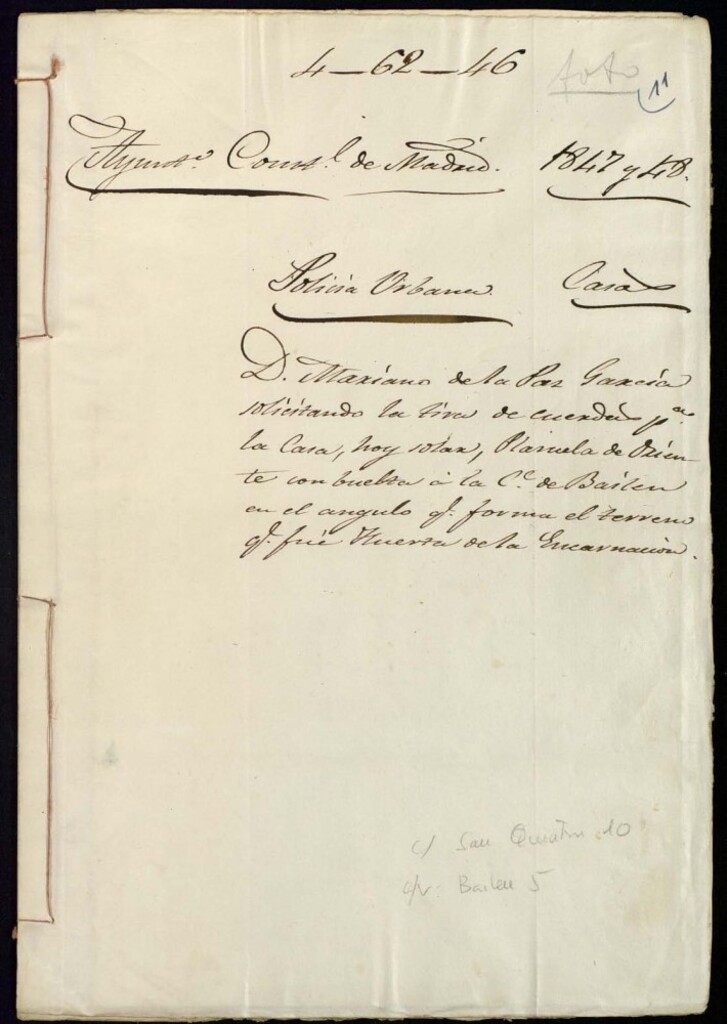 4-62-46
foto
11
Ayunto. Constl. de Madrid. 1847 y 48.
Policia Urbana. Casas
D. Mariano de la Paz García
solicitando la tira de cuerdas pa.
la Casa, hoy solar, Plazuela de Orien-
te con buelta á la Ce. de Bailen
en el angulo qe. forma el terreno
qe. fué Huerta de la Encarnacion.
c/ San Quintín 10
c/v. Bailen 5